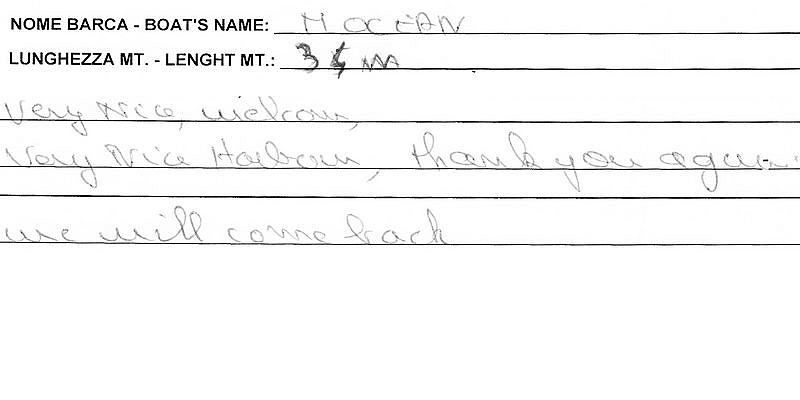 NOME BARCA - BOAT'S NAME: H OCEAN
LUNGHEZZA MT. - LENGHT MT.: 34 m
Very Nice, welcom,
Very Nice Harbour, thank you again
we will come back